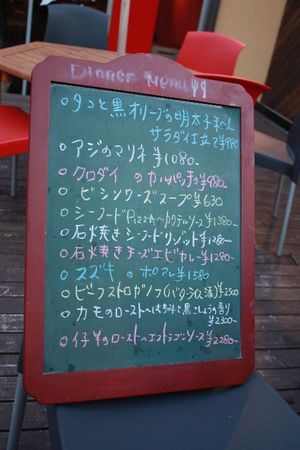 Dinner Menu
○タコと黒オリーブの明太子和え
サラダ仕立て¥980
○アジのマリネ¥1080-
○クロダイ のカルパッチョ¥980-
○ビシソワーズスープ¥630
○シーフードPizza カクテルソース¥1380-
○石火焼きシーフードリゾット¥1280-
○石火焼きチーズエビカレー¥1280-
○スズキ の ポアレ¥1580
○ビーフストロガノフ(バターライス添)¥2500
○カモのロースト はちみつと黒こしょうの香り
¥2300-
○仔羊のロースト エストラゴンソース¥2280-